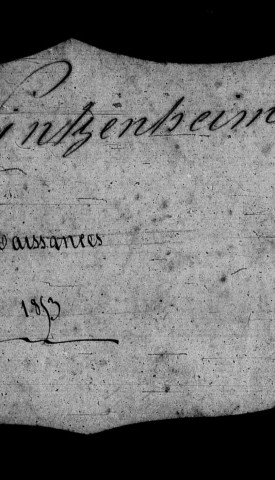 Wintzenheim
Naissances
1853